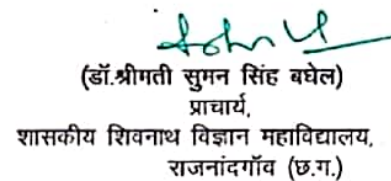 (डॉ.श्रीमती सुमन सिंह बघेल)
प्राचार्य,
शासकीय शिवनाथ विज्ञान महाविद्यालय,
राजनांदगॉव (छ.ग.)